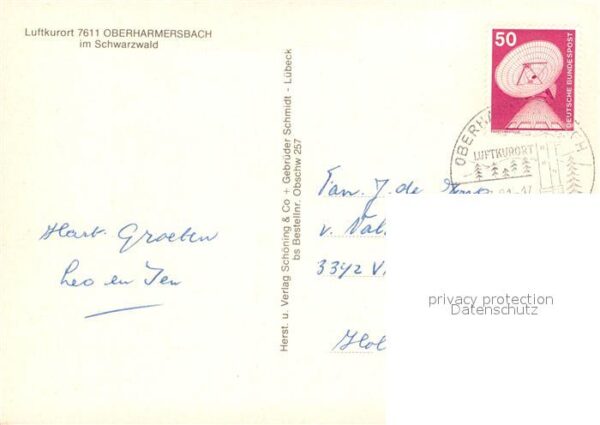 Luftkurort 7611 OBERHARMERSBACH
im Schwarzwald
50
DEUTSCHE BUNDESPOST
OBERHA
CH
LUFTKURORT
Herst. u. Verlag Schöning & Co + Gebrüder Schmidt - Lübeck
bs Bestellnr. Obschw 257
Fam. J. de
v.
3342 V
Hol
Hart. Groeten
Leo en Jen
privacy protection
Datenschutz